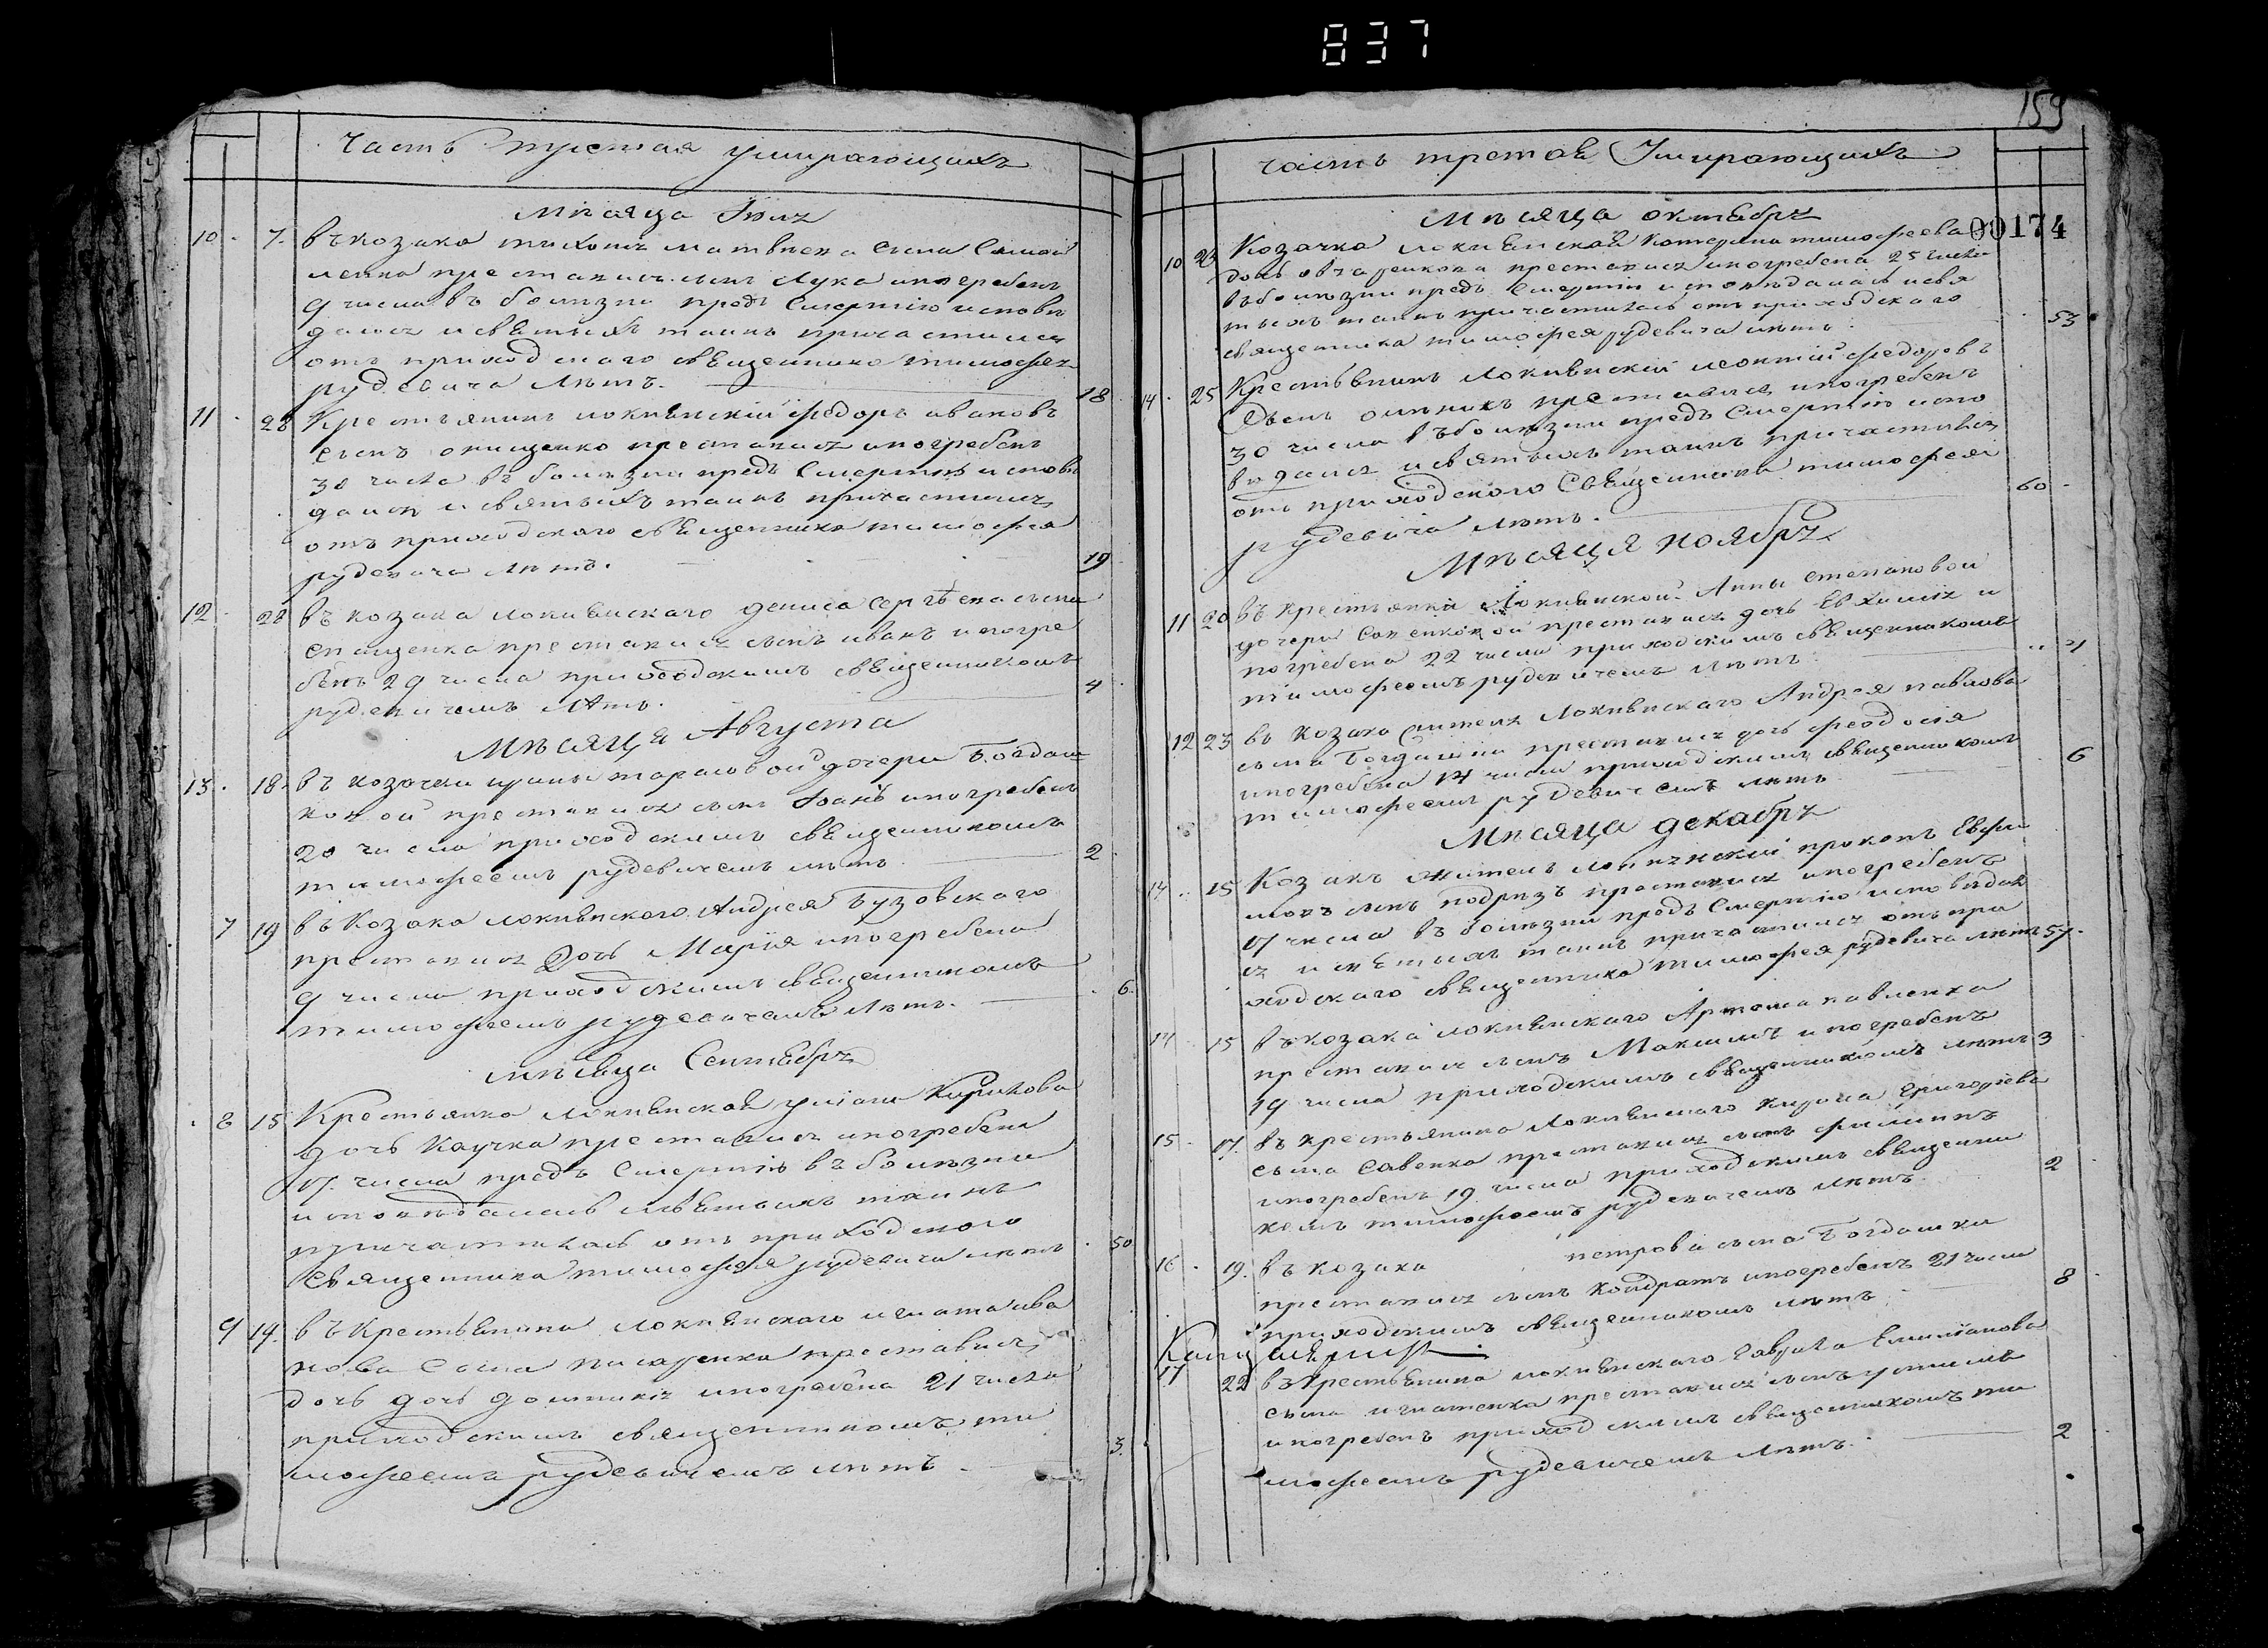 837
часть третая умирающихъ
мѣсяца Июля
10 7 въ козака тихона матвѣева сына Самой
ленка преставился сынъ Лука и погребенъ
9 числа въ болѣзни предъ смертію исповѣ
дался и святыхъ таинъ причастился
отъ приходскаго священника тимофея
рудевича лѣтъ. 18
11 28 Крестьянинъ локнѣнскій федоръ ивановъ
сынъ онищенко преставился и погребенъ
30 числа въ болѣзни предъ смертію исповѣ
дался и святыхъ таинъ причастился
отъ приходского священника тимофея
рудевича лѣтъ. 19
12 28 въ козака локнѣнскаго дениса сергѣева сына
преставился сынъ иванъ и погре
бенъ 29 числа приходскимъ священникомъ
рудевичемъ лѣтъ. 4
Мѣсяця Августа
13 18 въ козачки ирины тарасовой дочери Богдан
ковой преставился сынъ Іоанъ и погребенъ
20 числа приходскимъ священникомъ
тимофеемъ рудевичемъ лѣтъ 2
7 19 въ козака локнѣнского Андрея Бузовского
преставися дочь Марія и погребена
9 числа приходскимъ священникомъ
тимофеемъ рудевичемъ лѣтъ. 6
мѣсяца Сентябрь
8 15 Крестьянка локнѣнская Кирикова
дочь Каучка преставися и погребена
17 числа предъ смертію въ болѣзни
исповѣдалась святыхъ таинъ
причастилась отъ приходского
священника тимофея рудевича лѣтъ 50
9 19 въ крестьянина локнѣнского игната ива
нова сына писаренка преставися
дочь дочь домникія и погребена 21 числа
приходскимъ священникомъ ти
мофеемъ рудевичемъ лѣтъ 3
159
часть третая Умирающихъ
00174
Мѣсяца октябрь
10 23 Козачка локнѣнская Катерина тимофеева
дочь овчаренкова преставися и погребена 25 числа
въ болѣзни предъ смертію исповѣдалась и свя
тыхъ таинъ причастилась отъ приходскаго
священника тимофея рудевича лѣтъ 53
14 25 Крестьянинъ локнѣнскій леонтій федоровъ
сынъ олѣникъ преставися и погребенъ
30 числа въ болѣзни предъ смертію испо
вѣдался и святыхъ таинъ причастився
отъ приходского священника тимофея
рудевича лѣтъ. 60
Мѣсяця ноябрь
11 20 въ крестьянки Локнѣнской Анны степановой
дочери преставися дочь Евхимія и
погребена 22 числа приходскимъ священникомъ
тимофеемъ рудевичемъ лѣтъ 4
12 23 въ козака жителя Локнѣнскаго Андрея павлова
сына Богдашки преставися дочь феодосія
и погребена 14 числа приходскимъ священникомъ
тимофеемъ рудевичемъ лѣтъ 6
Мѣсяца декабрь
14 15 Козакъ житель локнѣнскій прокопъ Евфи
мовъ сынъ подризъ преставися и погребенъ
17 числа въ болѣзни предъ смертію исповѣдал
ся и святыхъ таинъ причастился отъ при
ходскаго священника тимофея рудевича лѣтъ 57
14 15 въ козака локнѣнскаго Артема павленка
преставися сынъ Максимъ и погребенъ
19 числа приходскимъ священникомъ лѣтъ 3
15 17 въ крестьянина локнѣнского Кирила григорьева
сына савенка преставися сынъ филипъ
и погребенъ 19 числа приходскимъ священни
комъ тимофеемъ рудевичемъ лѣтъ 2
16 19 въ козака петрова сына Богдашки
преставися сынъ Кондратъ и погребенъ 21 числа
приходскимъ священникомъ лѣтъ 8
17 22 въ крестьянина локнѣнскаго гаврила Емиліанова
сына игнатенка преставися сынъ устимъ
и погребенъ приходскимъ священникомъ ти
мофеемъ рудевичемъ лѣтъ. 2